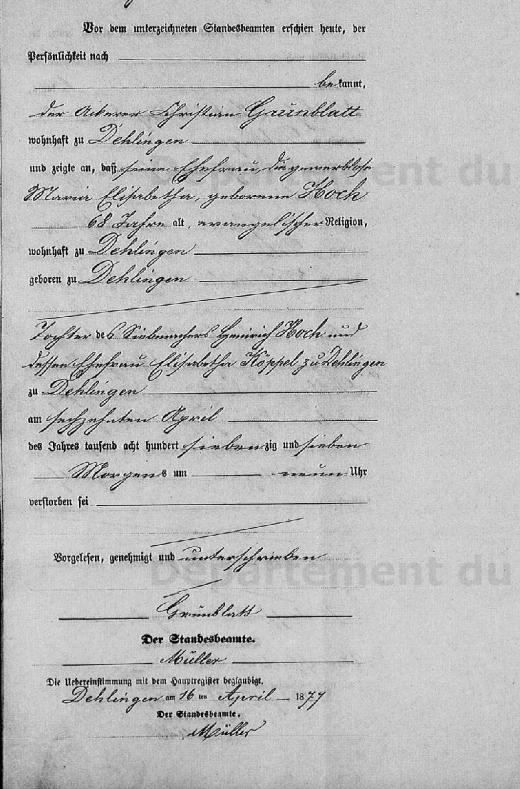 Vor dem unterzeichneten Standesbeamten erschien heute, der
Persönlichkeit nach
bekannt,
der Ackerer Christian Grünblatt
wohnhaft zu Dehlingen
und zeigte an, daß seine Ehefrau, die gewerblose
Maria Elisabetha, geborene Hoch
68 Jahre alt, evangelischer Religion,
wohnhaft zu Dehlingen
geboren zu Dehlingen
Tochter des Siebmachers Heinrich Hoch und
dessen Ehefrau Elisabetha Köppel zu Dehlingen
zu Dehlingen
am sechzehnten April
des Jahres tausend acht hundert siebenzig und sieben
Morgens um neun Uhr
verstorben sei
Vorgelesen, genehmigt und unterschrieben
Grünblatt
Der Standesbeamte.
Müller
Die Uebereinstimmung mit dem Hauptregister beglaubigt.
Dehlingen am 16 ten April 1877
Der Standesbeamte.
Müller
Département du
Département du